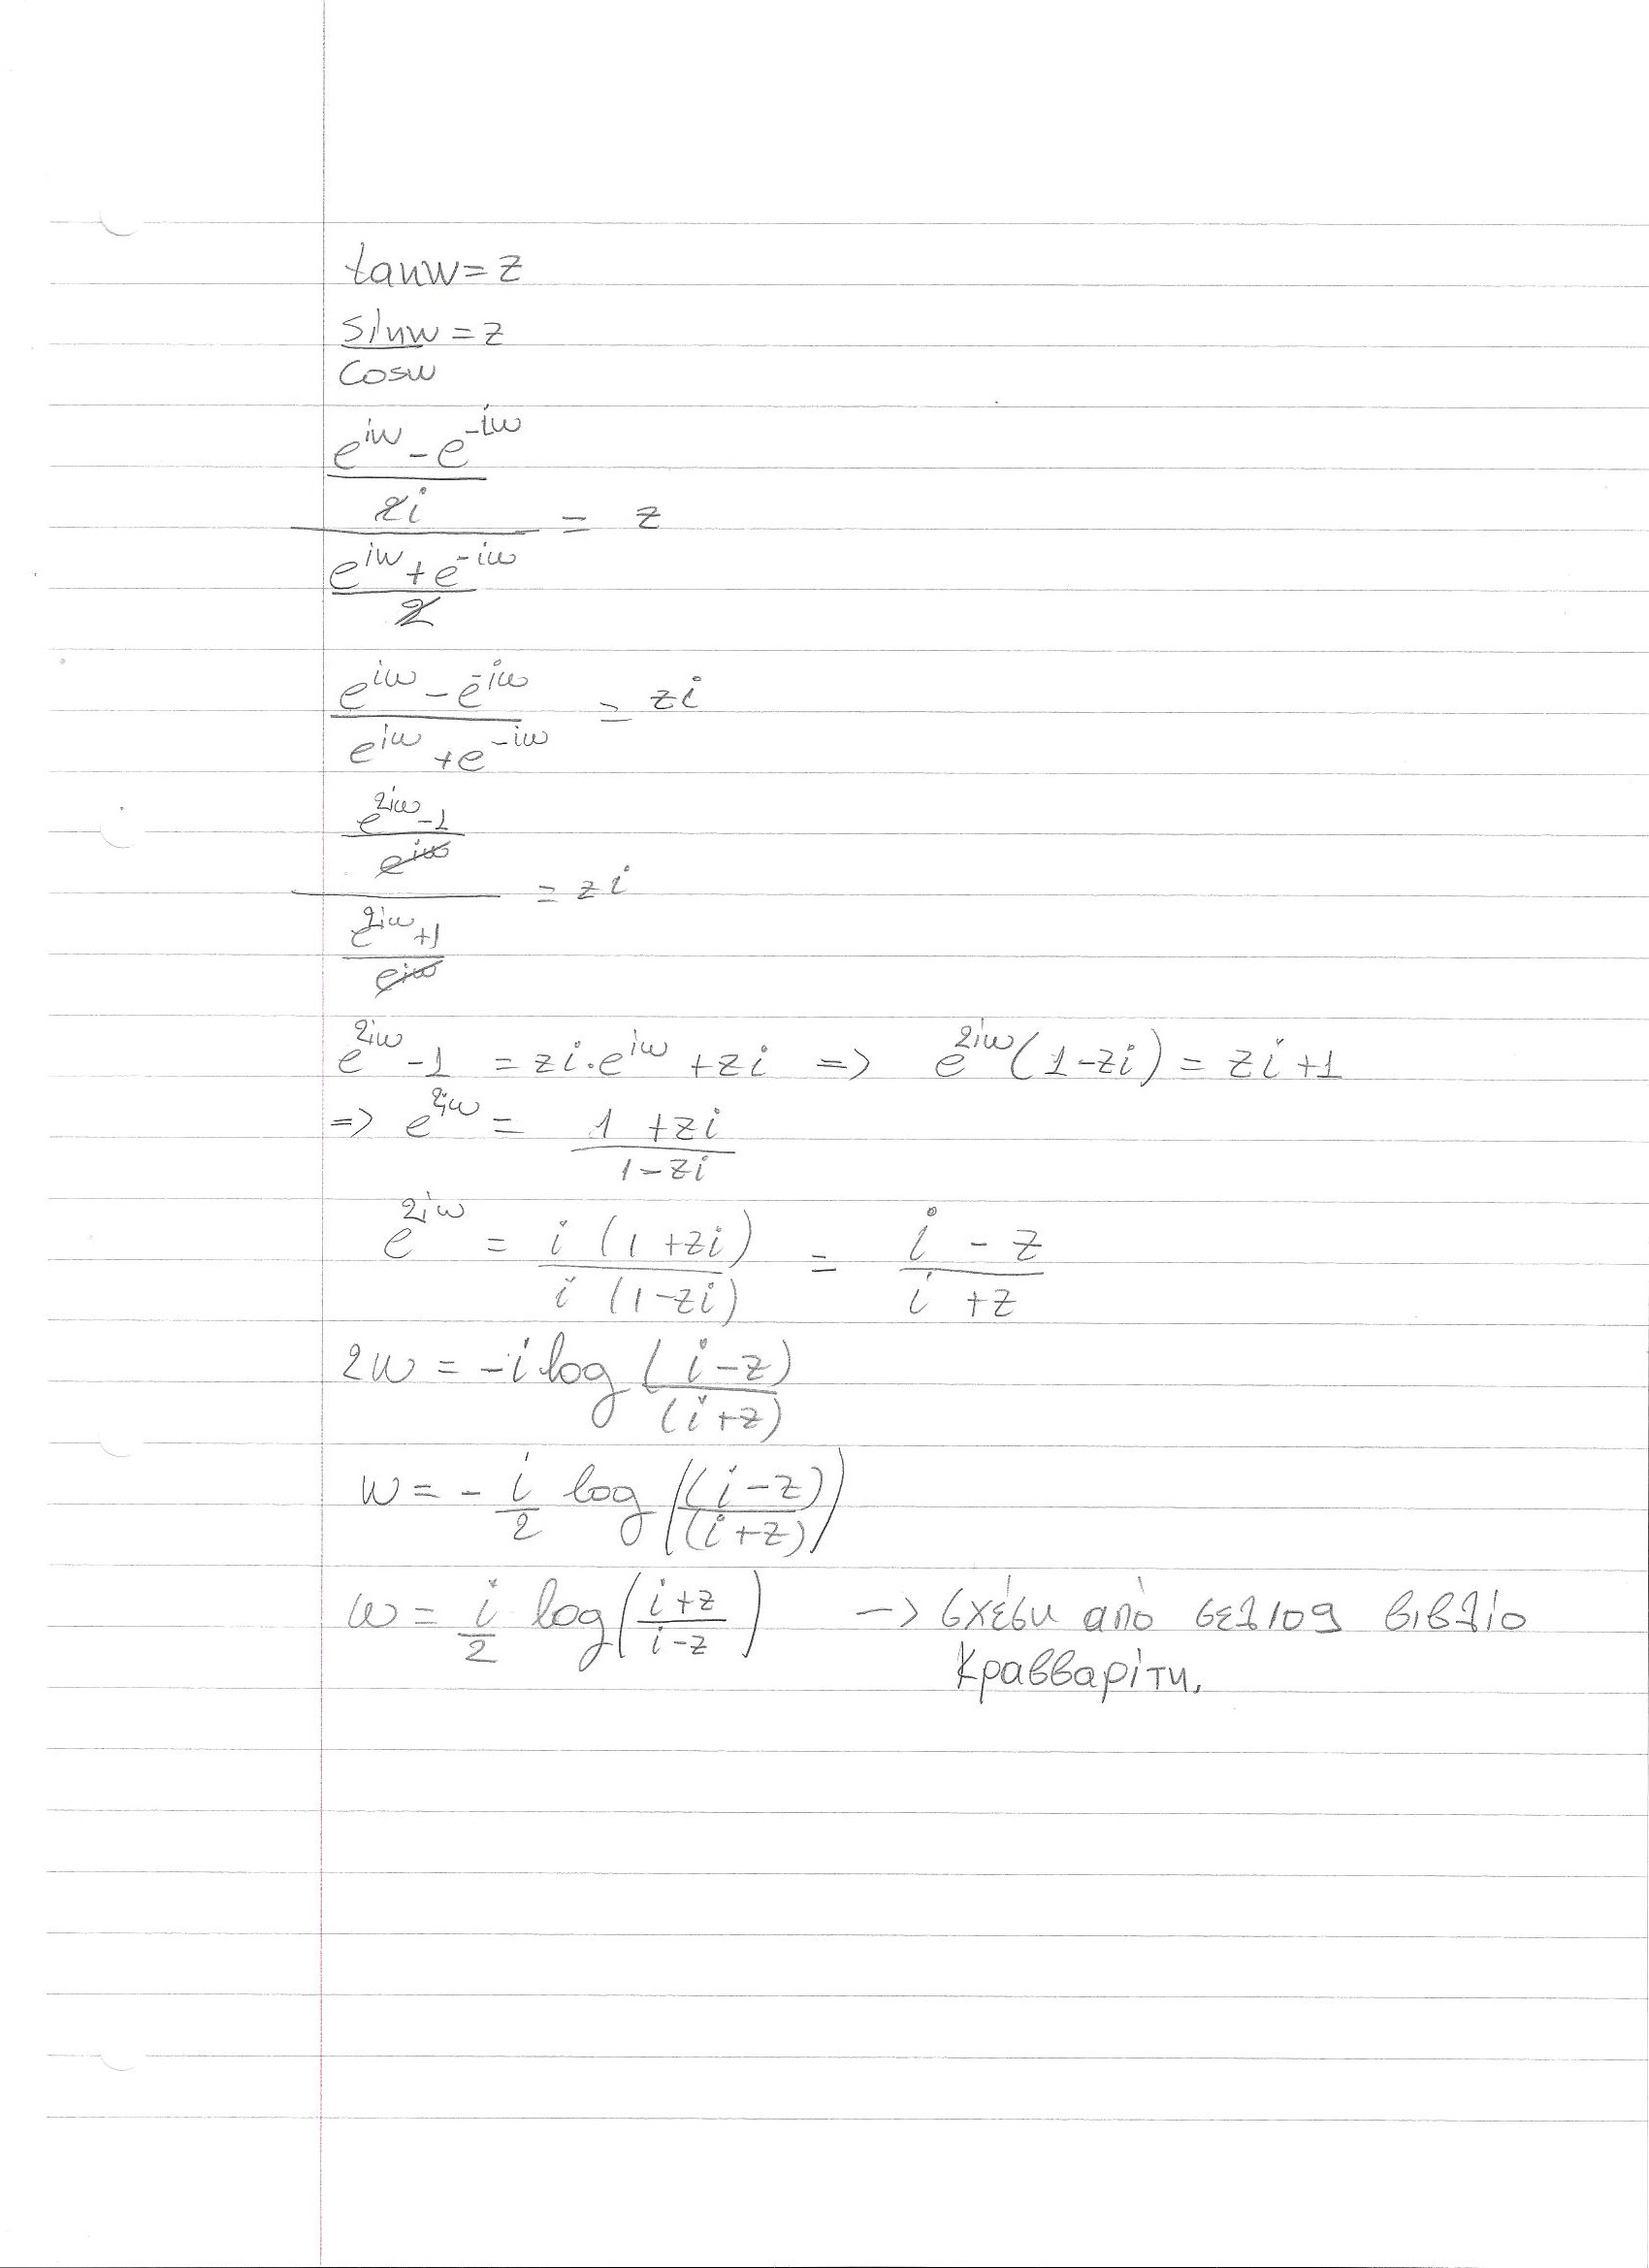 tanw = z
sinw/cosw = z
((e^{iw} - e^{-iw})/(2i))/((e^{iw} + e^{-iw})/2) = z
(e^{iw} - e^{-iw})/(e^{iw} + e^{-iw}) = zi
((e^{2iw} - 1)/e^{iw})/((e^{2iw} + 1)/e^{iw}) = zi
e^{2iw} - 1 = zi·e^{iw} + zi => e^{2iw}(1-zi) = zi+1
=> e^{2iw} = (1+zi)/(1-zi)
e^{2iw} = i(1+zi)/i(1-zi) = (i-z)/(i+z)
2w = -i log (i-z)/(i+z)
w = -i/2 log((i-z)/(i+z))
w = i/2 log((i+z)/(i-z)) -> σχέση από σελ 109 βιβλίο
Κραββαρίτη.